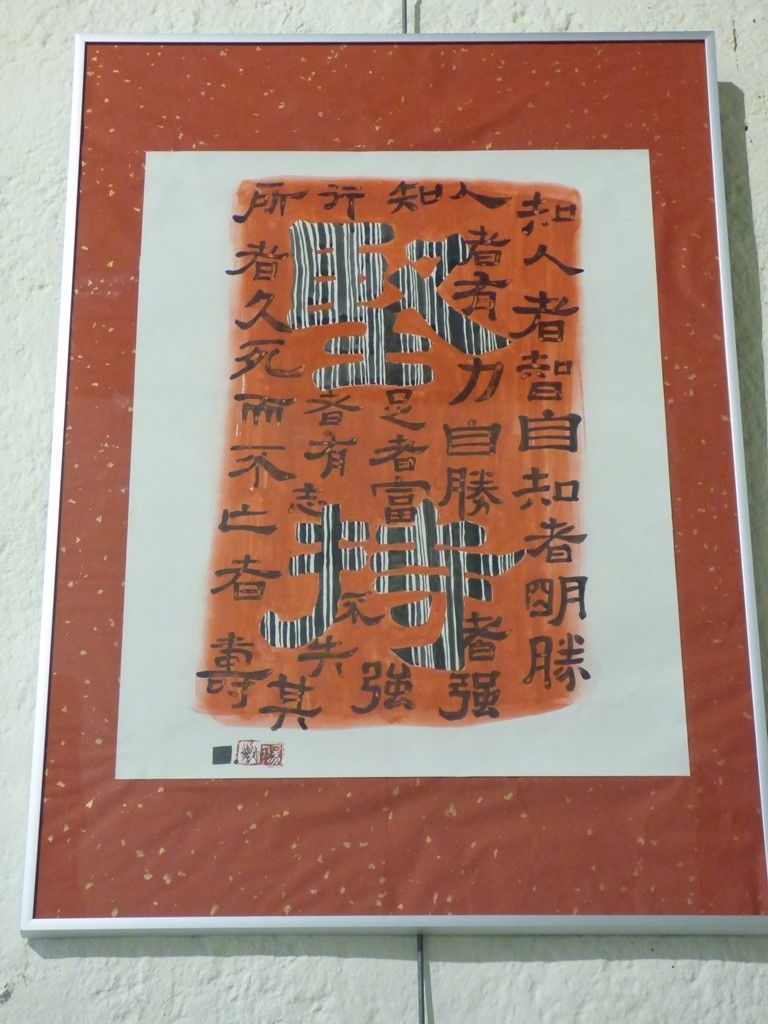 堅持
知人者智自知者明勝
人者有力自勝者强
知足者富強
行者有志不失其
所者久死而不亡者壽